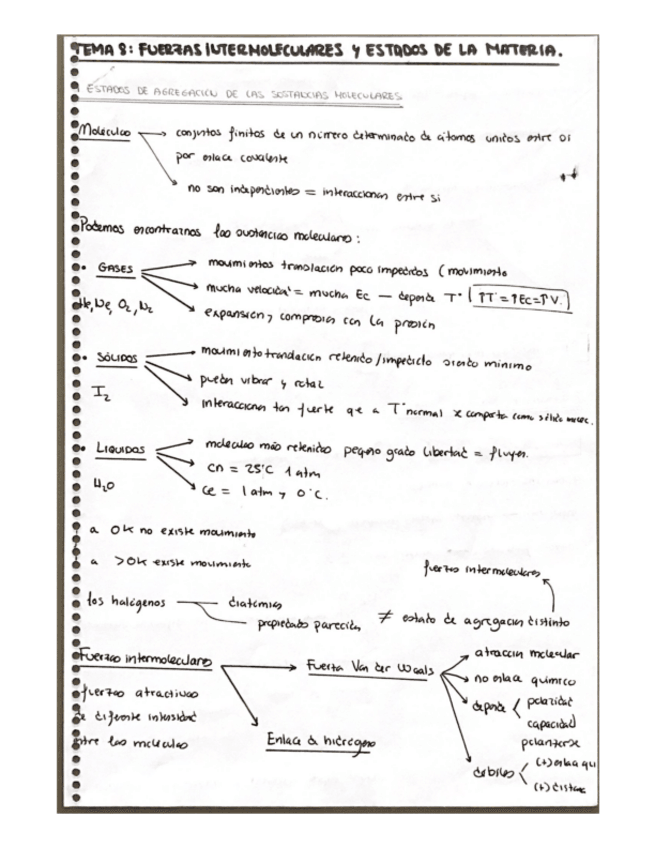 TEMA 8: FUERZAS INTERMOLECULARES Y ESTADOS DE LA MATERIA.
ESTADOS DE AGREGACIÓN DE LAS SUSTANCIAS MOLECULARES
Moléculas → conjuntos finitos de un número determinado de átomos unidos entre sí
por enlace covalente
no son independientes = interaccionan entre sí
Podemos encontrarnos las sustancias moleculares:
• GASES → movimientos translación poco impedidos (movimiento
mucha velocidad = mucha Ec — depende Tª ↑Tª=↑Ec=↑V.
He, Ne, O2, N2
expansión y compresión con la presión
• SÓLIDOS → movimiento translación retenido/impedido siendo mínimo
pueden vibrar y rotar
I2
interacciones tan fuerte que a Tª normal se comporta como sólido
• LIQUIDOS → moleculas más retenidas pequeño grado libertad = fluyen.
H2O
cn = 25°C 1 atm
ce = 1 atm y 0°C.
a 0K no existe movimiento
a >0K existe movimiento
fuerzas intermoleculares
los halógenos — diatómicos
propiedades parecidas ≠ estado de agregación distinto
Fuerzas intermoleculares → Fuerza Van der Waals → atracción molecular
no enlace químico
fuerzas atractivas
depende < polaridad
de diferente intensidad
capacidad
polarizarse
entre las moléculas
Enlace de hidrógeno
débiles < (+) enlace qu
(+) distanc